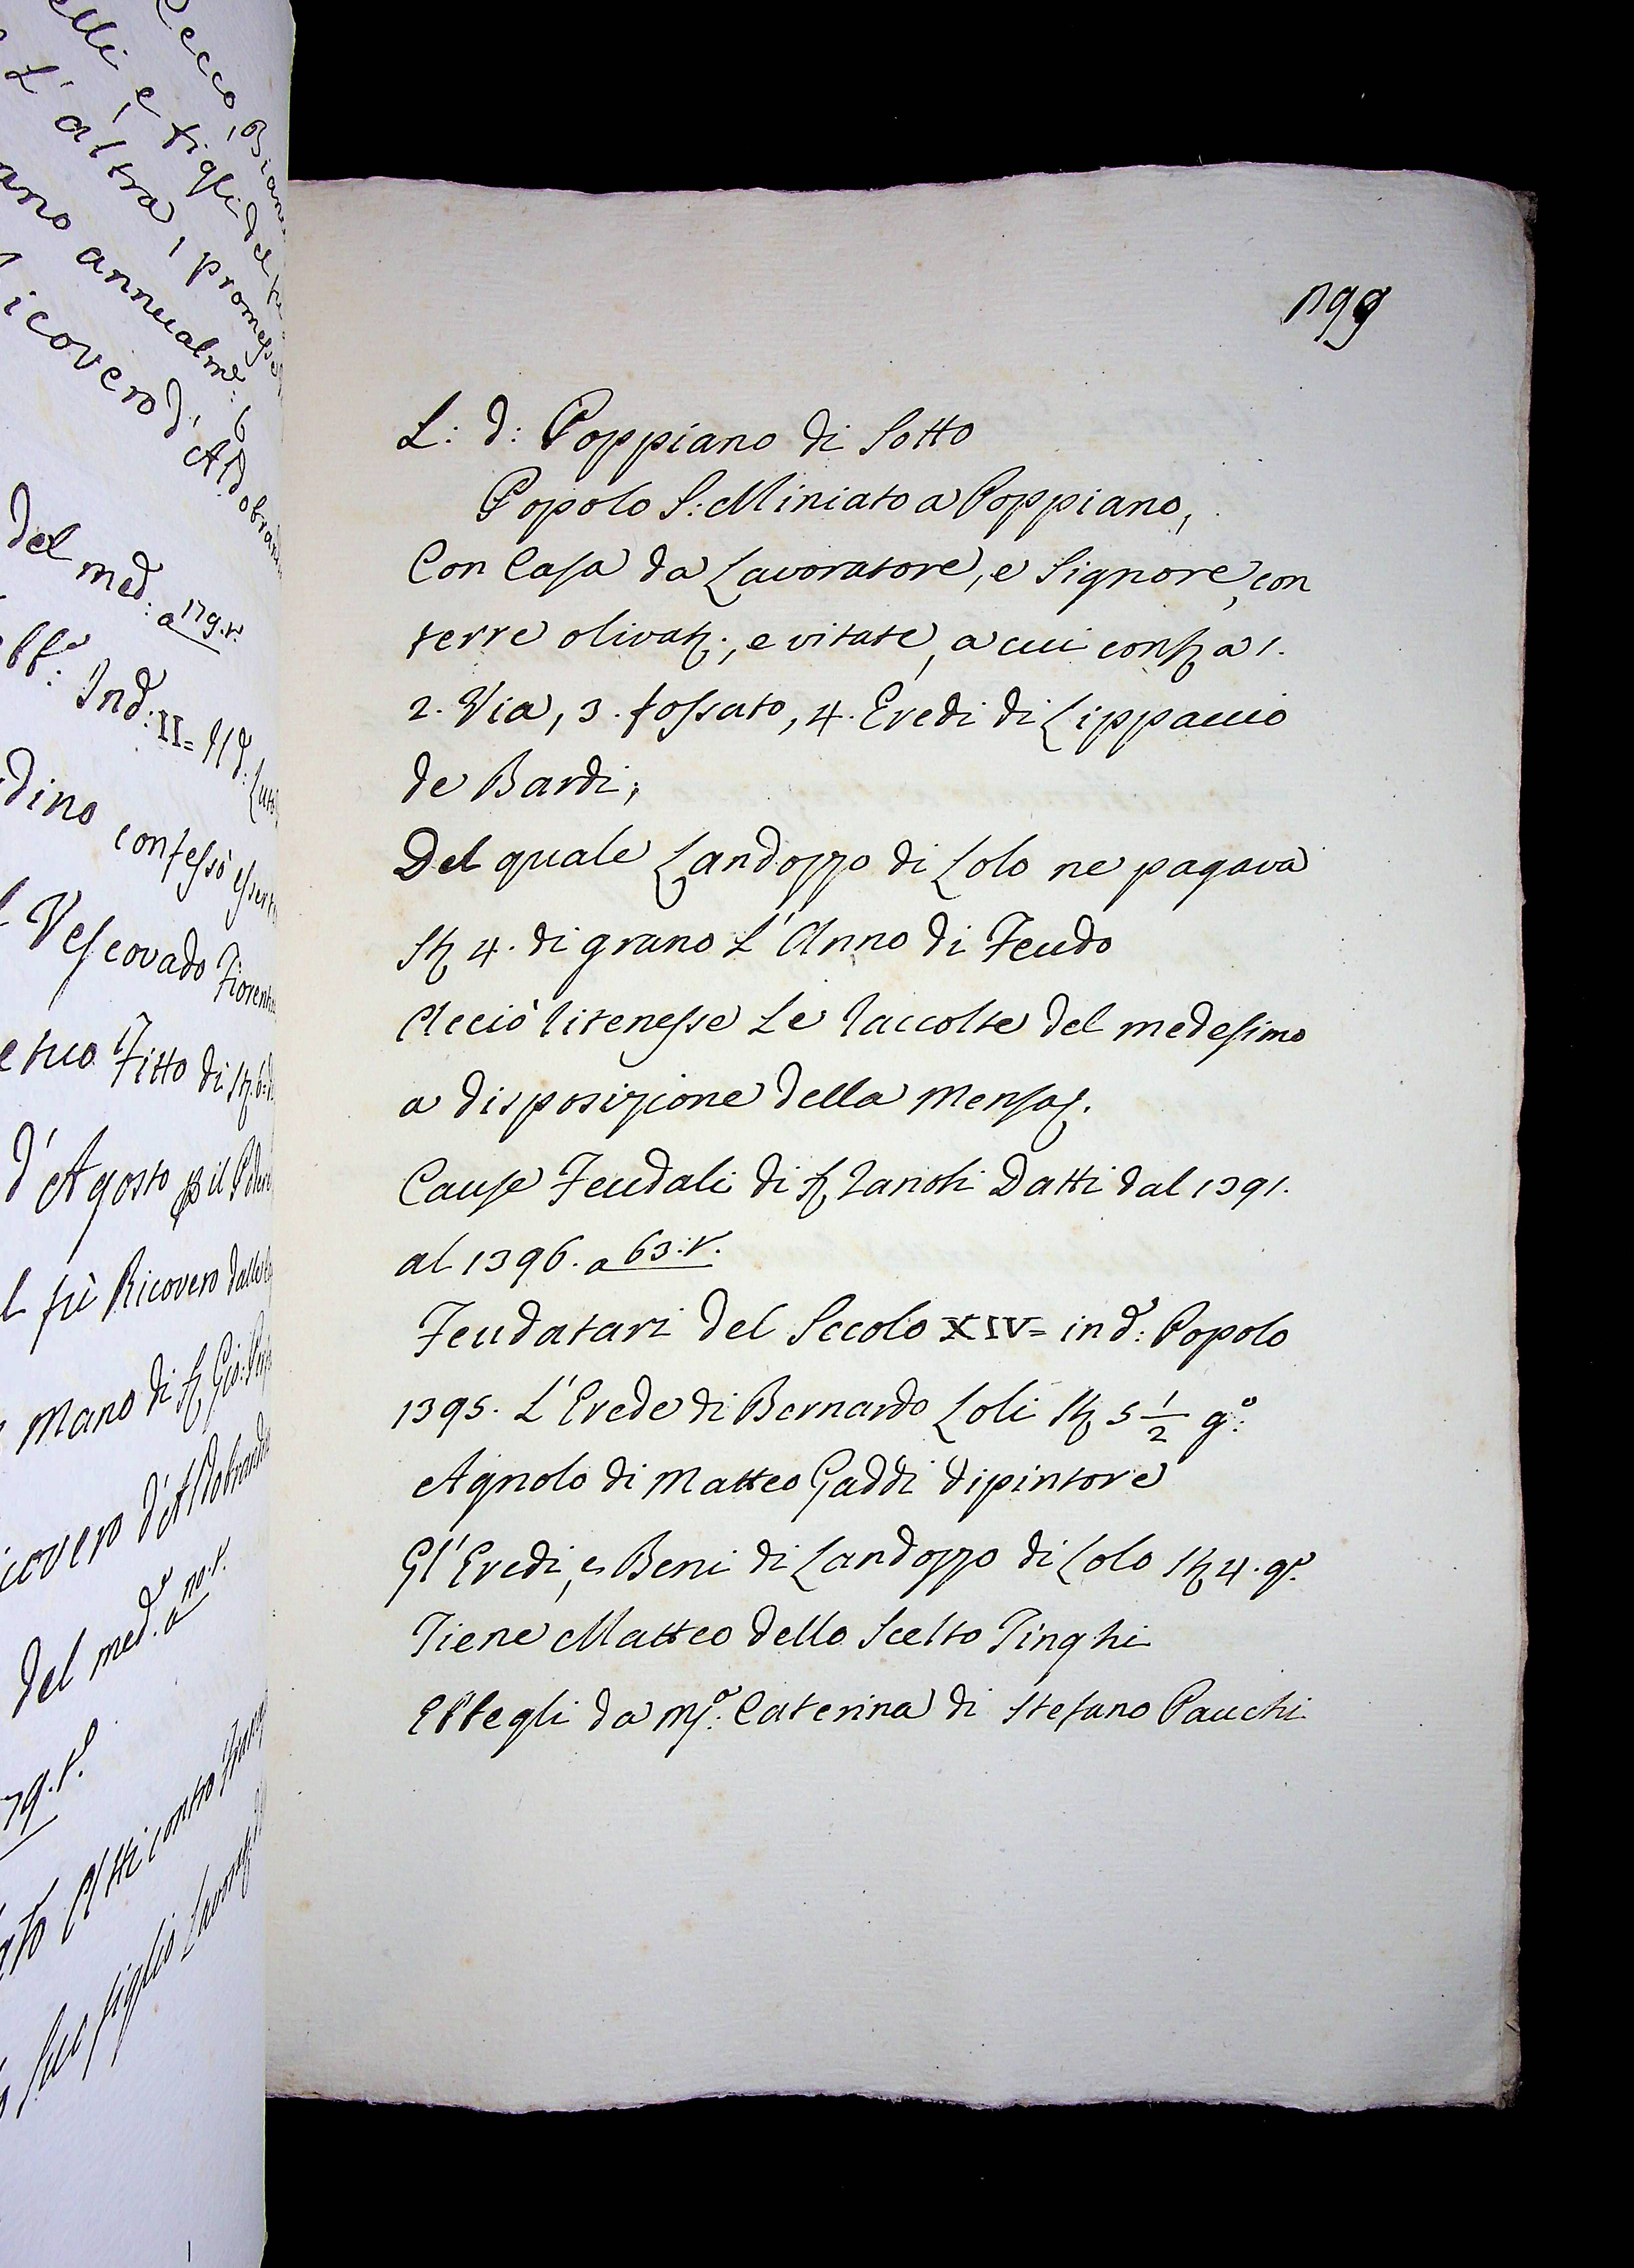 ecco, Bian
elli, e figli del
L'altra, promesse
ano annualmẽ: 6
icovero d'Aldobran
del med: a 179.r.
Ind: II=
dino confessò esser
Vescovado Fiorent
Fitto di
d'Agosto il Podere
fù Ricovero dalle
mano di Gio:
icovero d'Aldobrand
del med. a
79.r.
contro
figlio Lavorat
199
L: d: Poppiano di Sotto
Popolo S: Miniato a Poppiano,
Con Casa da Lavoratore, e Signore, con
terre olivat:, e vitate, a cui conf: a 1.
2. Via, 3. fossato, 4. Eredi di Lippaccio
de Bardi;
Del quale Landozzo di Lolo ne pagava
St 4. di grano L'Anno di Feudo
Acciò ritenesse Le raccolte del medesimo
a disposizione della Mensa.
Cause Feudali di S. Zanobi Datti dal 1391.
al 1396. a 63:r.
Feudatari del Secolo XIV= in d: Popolo
1395. L'Erede di Bernardo Loli St 5 1/2 g:º
Agnolo di Matteo Gaddi dipintore
Gl'Eredi, e Beni di Landozzo di Lolo St 4. gº
Tiene Matteo dello Scelto Tinghi
Ebbegli da Mª: Caterina di Stefano Pauchi